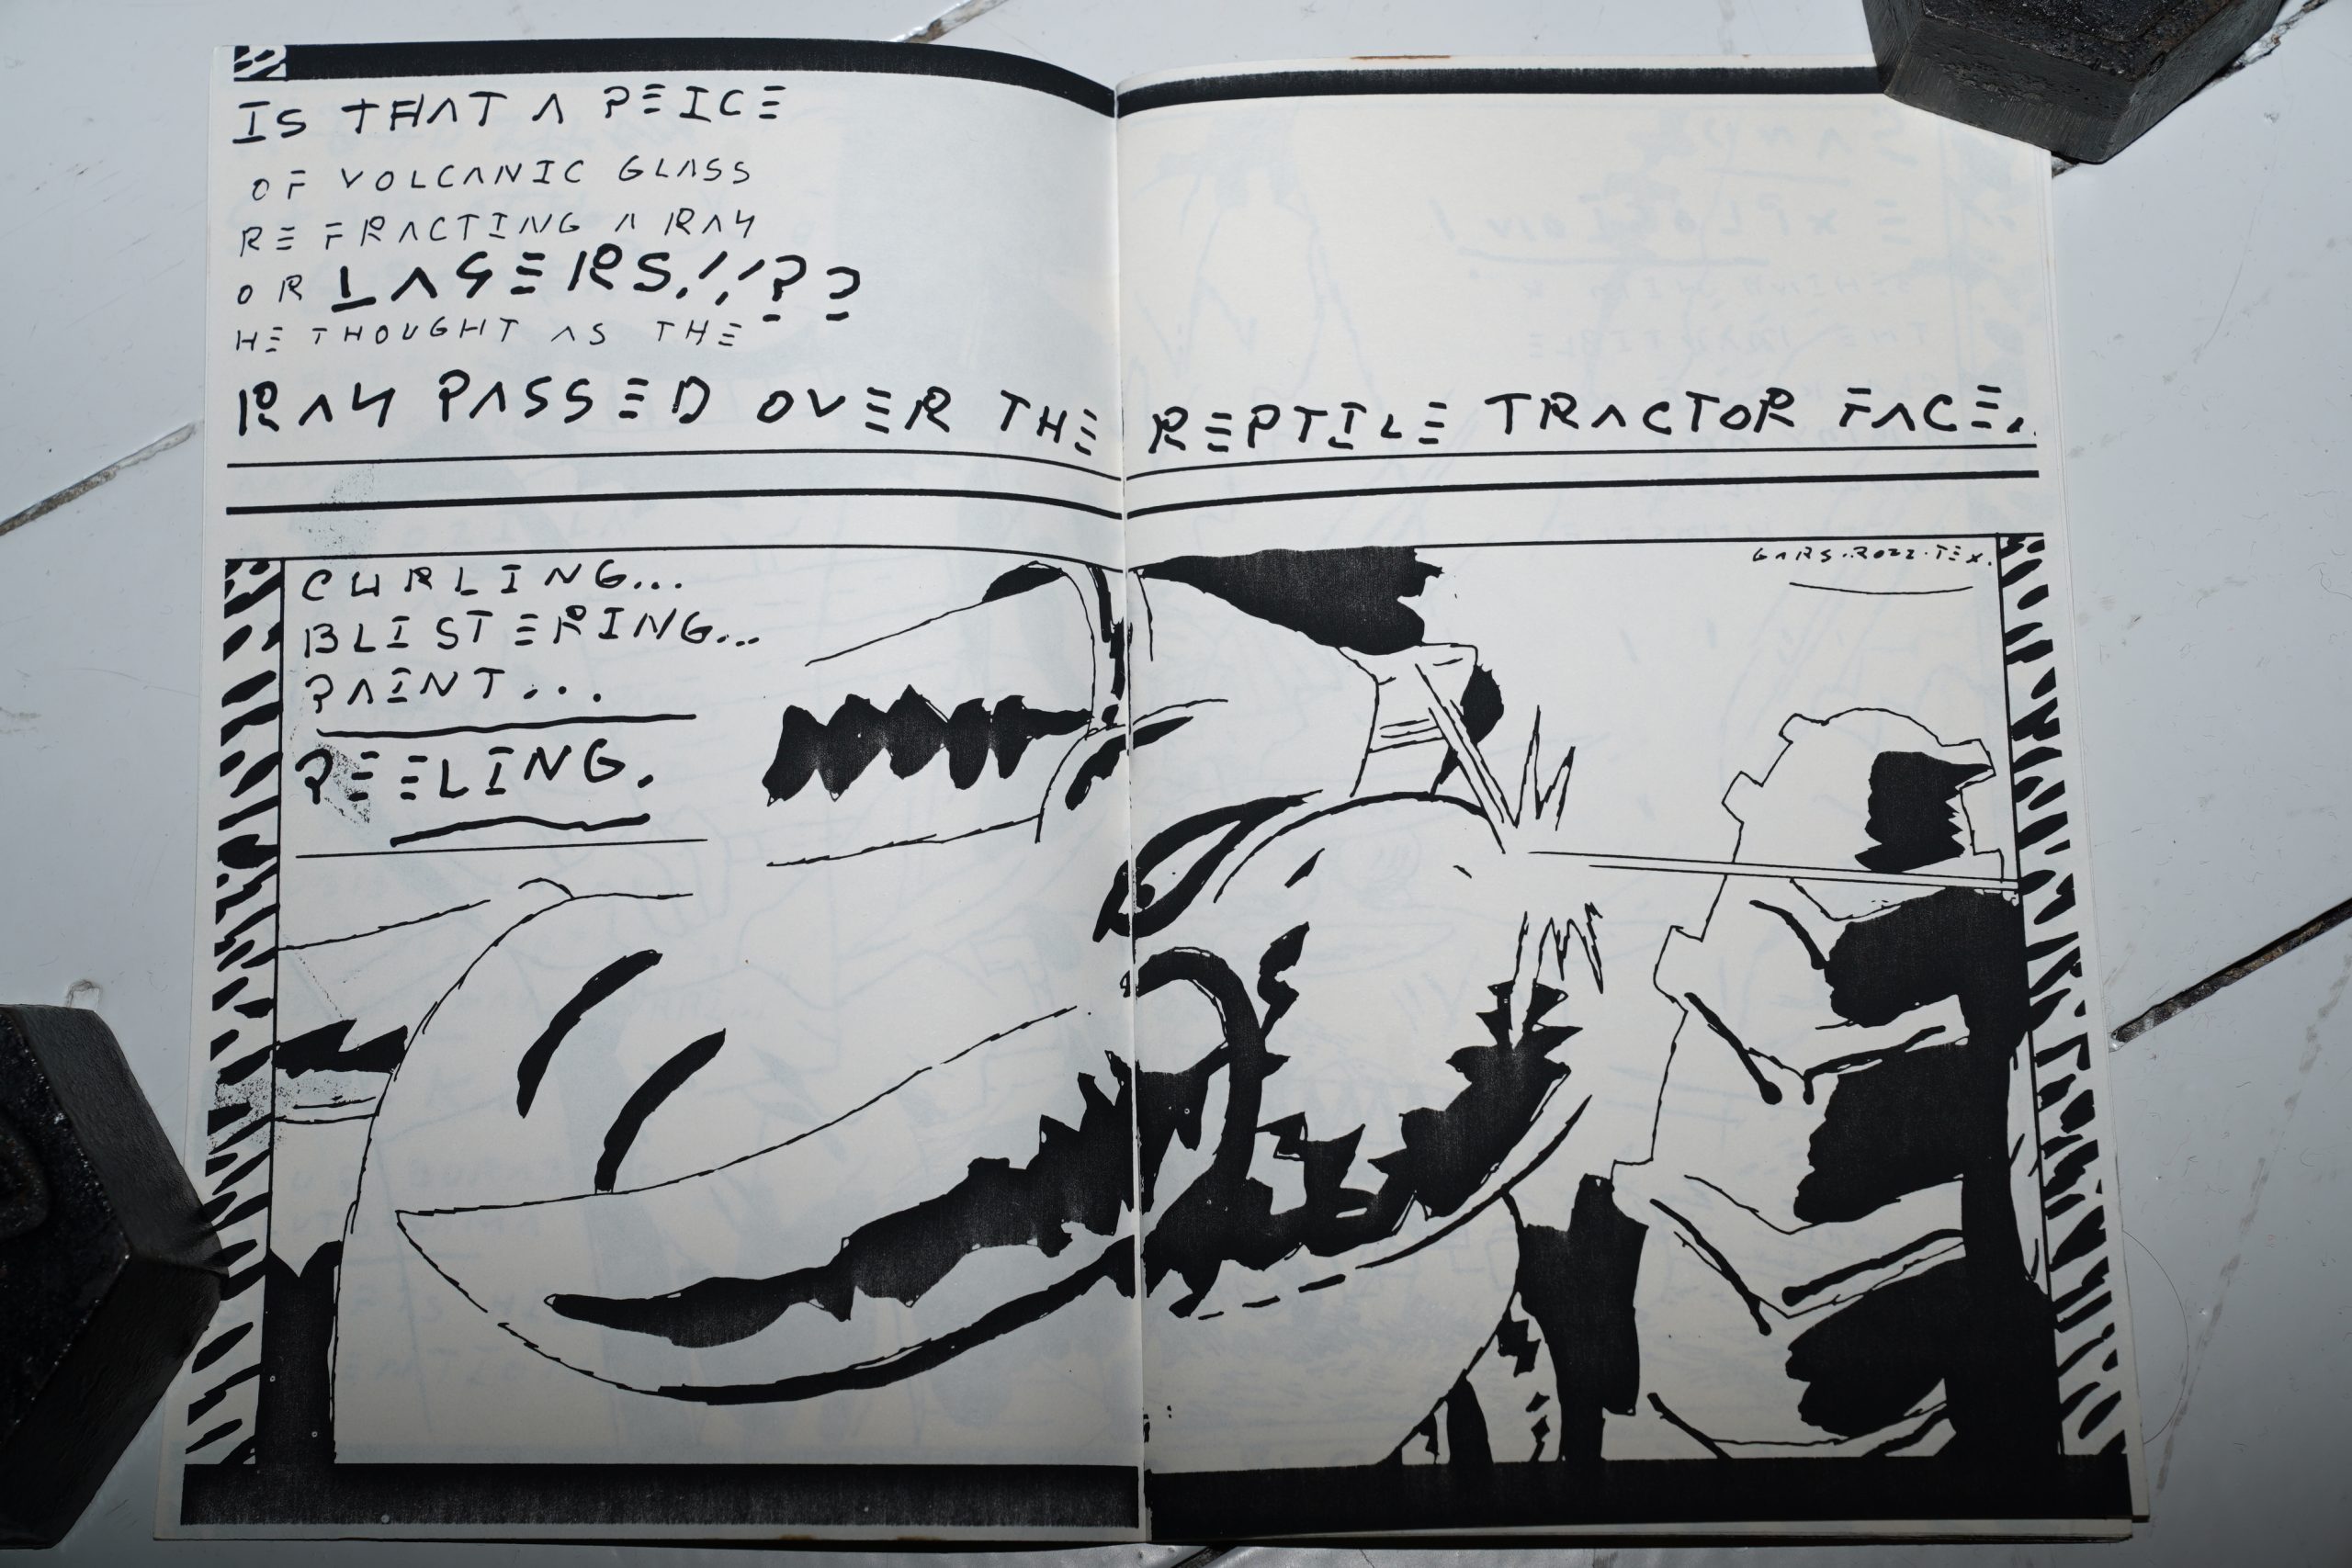 IS THAT A PEICE
OF VOLCANIC GLASS
REFRACTING A RAY
OR LASERS!!??
HE THOUGHT AS THE
RAY PASSED OVER THE REPTILE TRACTOR FACE.
GARS.2022.TEX.
CURLING...
BLISTERING...
PAINT...
PEELING.